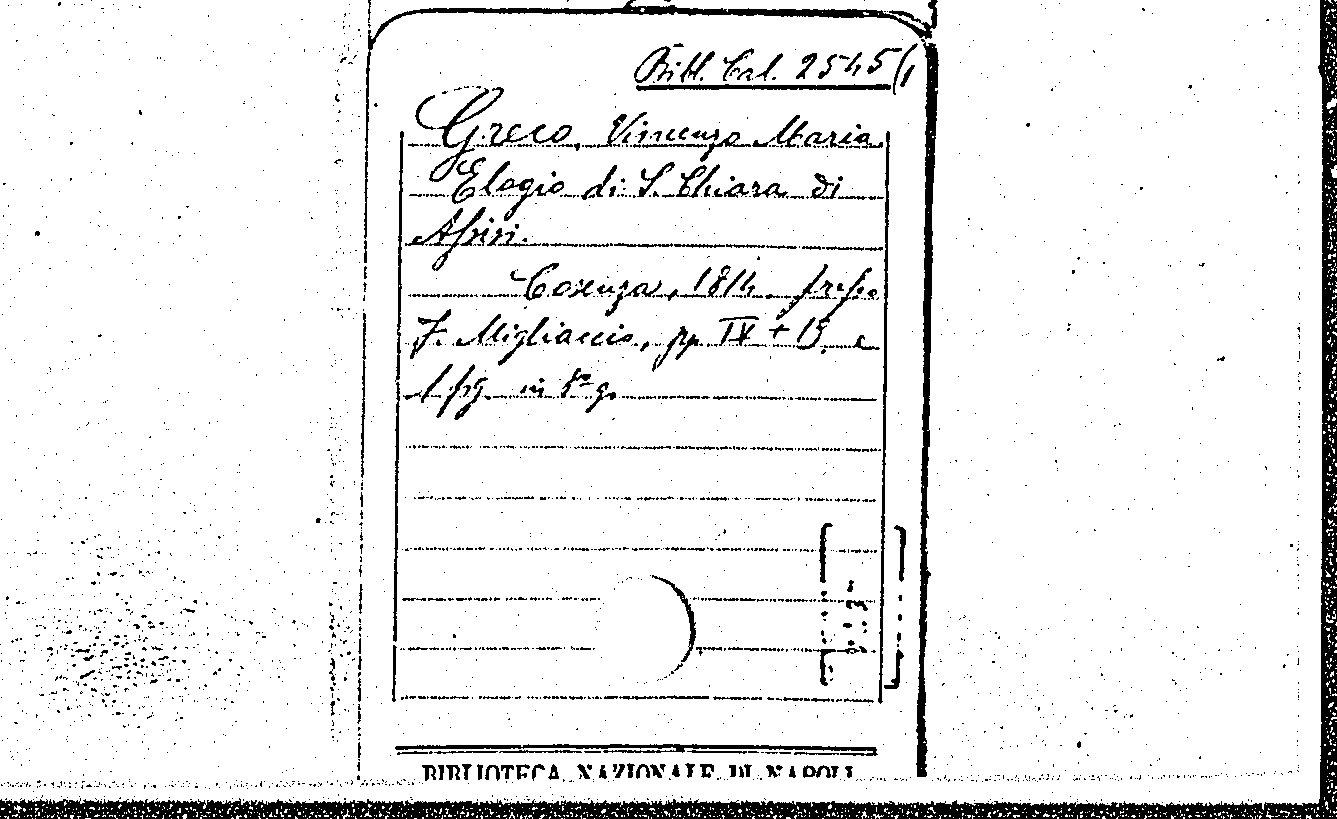 Bibl. Cal. 2545(1
Greco, Vincenzo Maria.
Elogio di S. Chiara di
Assisi.
Cosenza, 1814. presso
F. Migliaccio, pp. IX + 19, e
1 fig. in 8º g.
BIBLIOTECA NAZIONALE DI NAPOLI